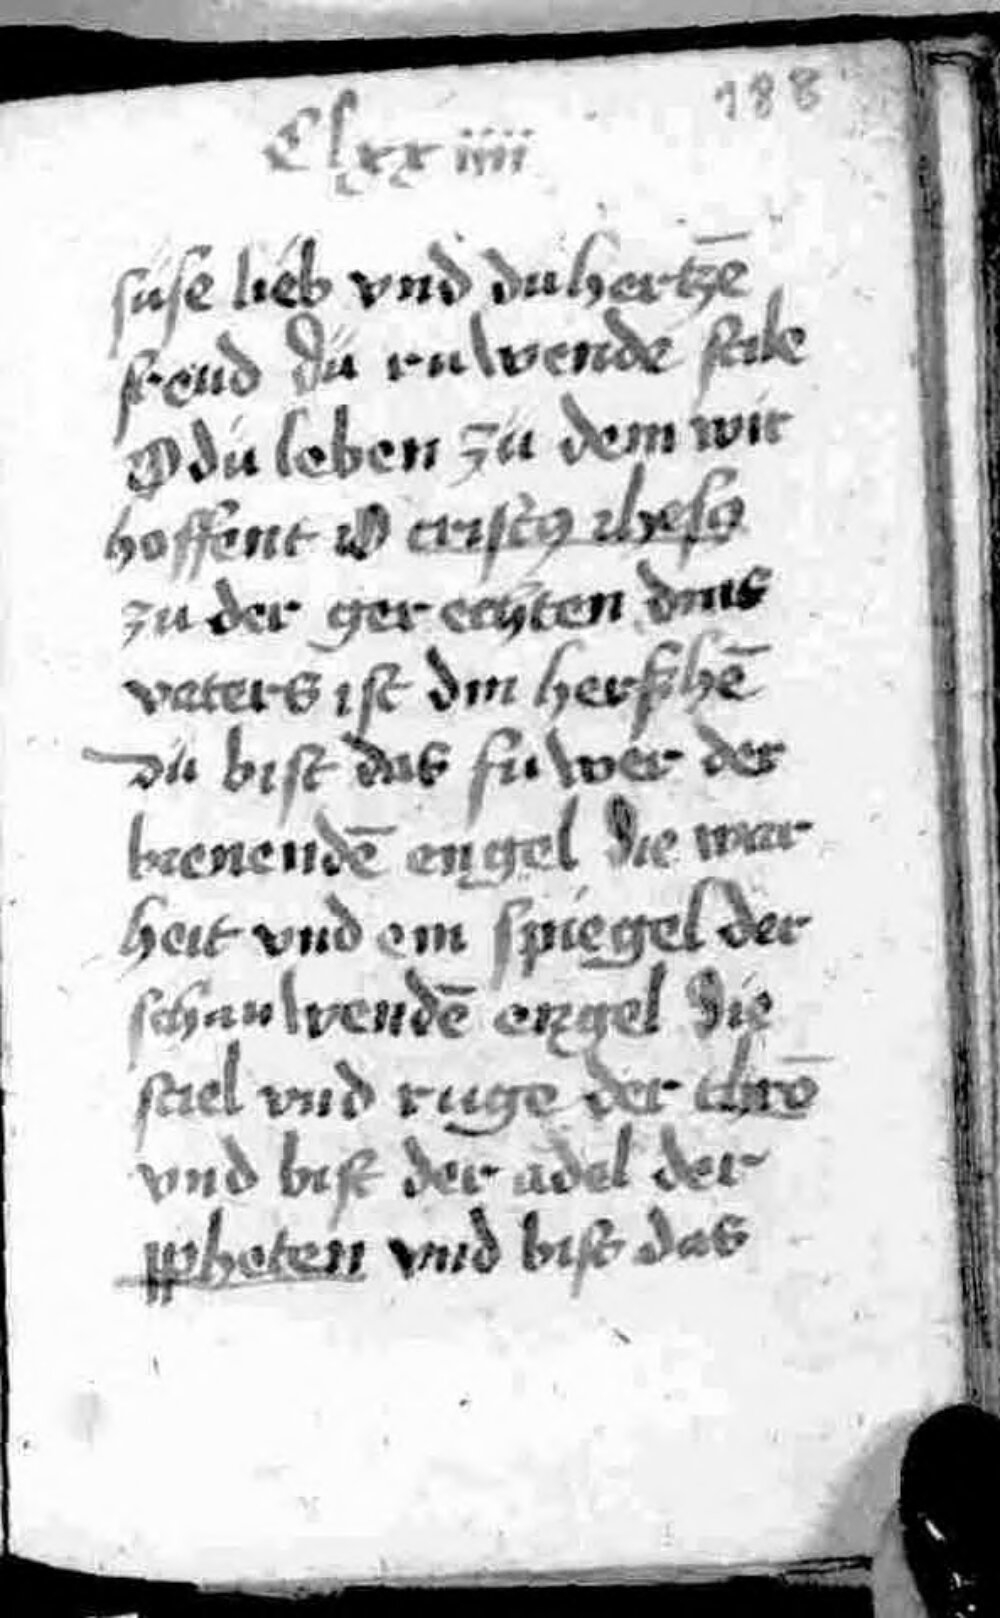 188
Clxxiiii
süse lieb vnd du hertzē
freud dü ruwende stile
O dü leben zü dem wir
hoffent O cristꝰ ihesꝰ
zu der gerechten dins
vaters ist din herschē
dü bist das fuwer der
brenendē engel die war
heit vnd ein spiegel der
schauwendē engel die
stiel vnd ruge der thrō
vnd bist der adel der
ꝓpheten vnd bist das